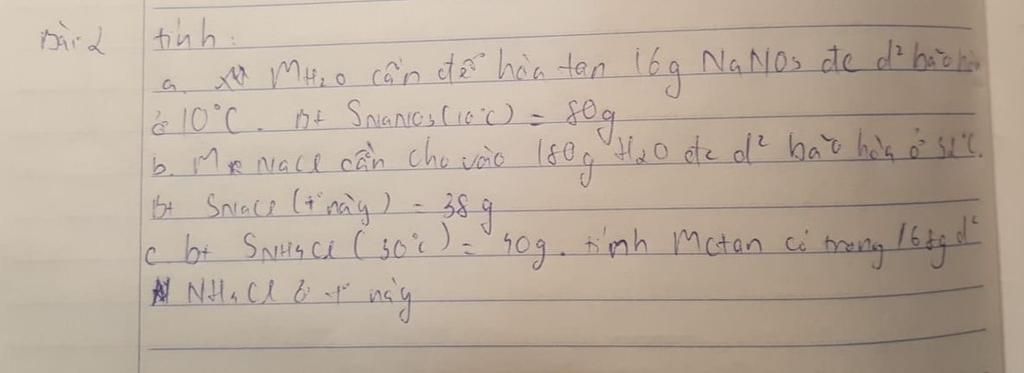 Bài 2 tính:
a. mH₂O cần để hòa tan 16g NaNO₃ đc d² bão hòa
ở 10°C. bt SNaNO₃(10°C) = 80g
b. m NaCl cần cho vào 180g H₂O đc d² bão hòa ở °C.
bt SNaCl (t° này) = 38g
c bt SNH₄Cl (30°C) = 40g. tính mctan có trong 168g d²
NH₄Cl ở t° này